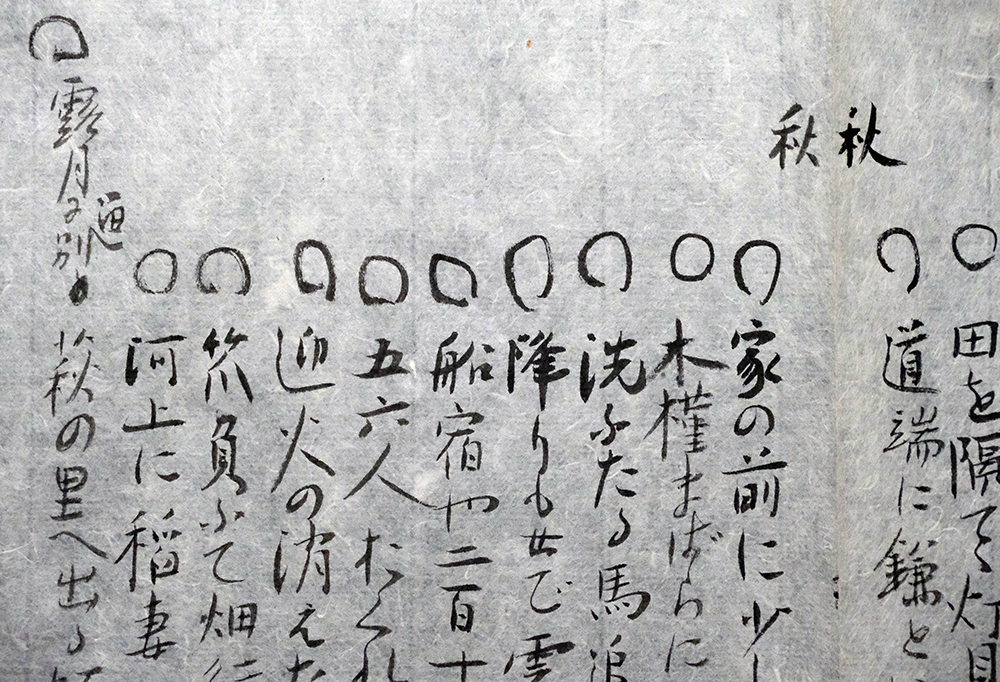 ○田を隔てゝ灯見
○道端に鎌と
秋
秋
○家の前に少し
○木槿まばらに
○洗ふたる馬追
○降りもせで雲
○船宿や二百十
○五六人おくれ
○迎火の消えた
○笊負ふて畑
○河上に稲妻
○露月 別る 萩の里へ出る